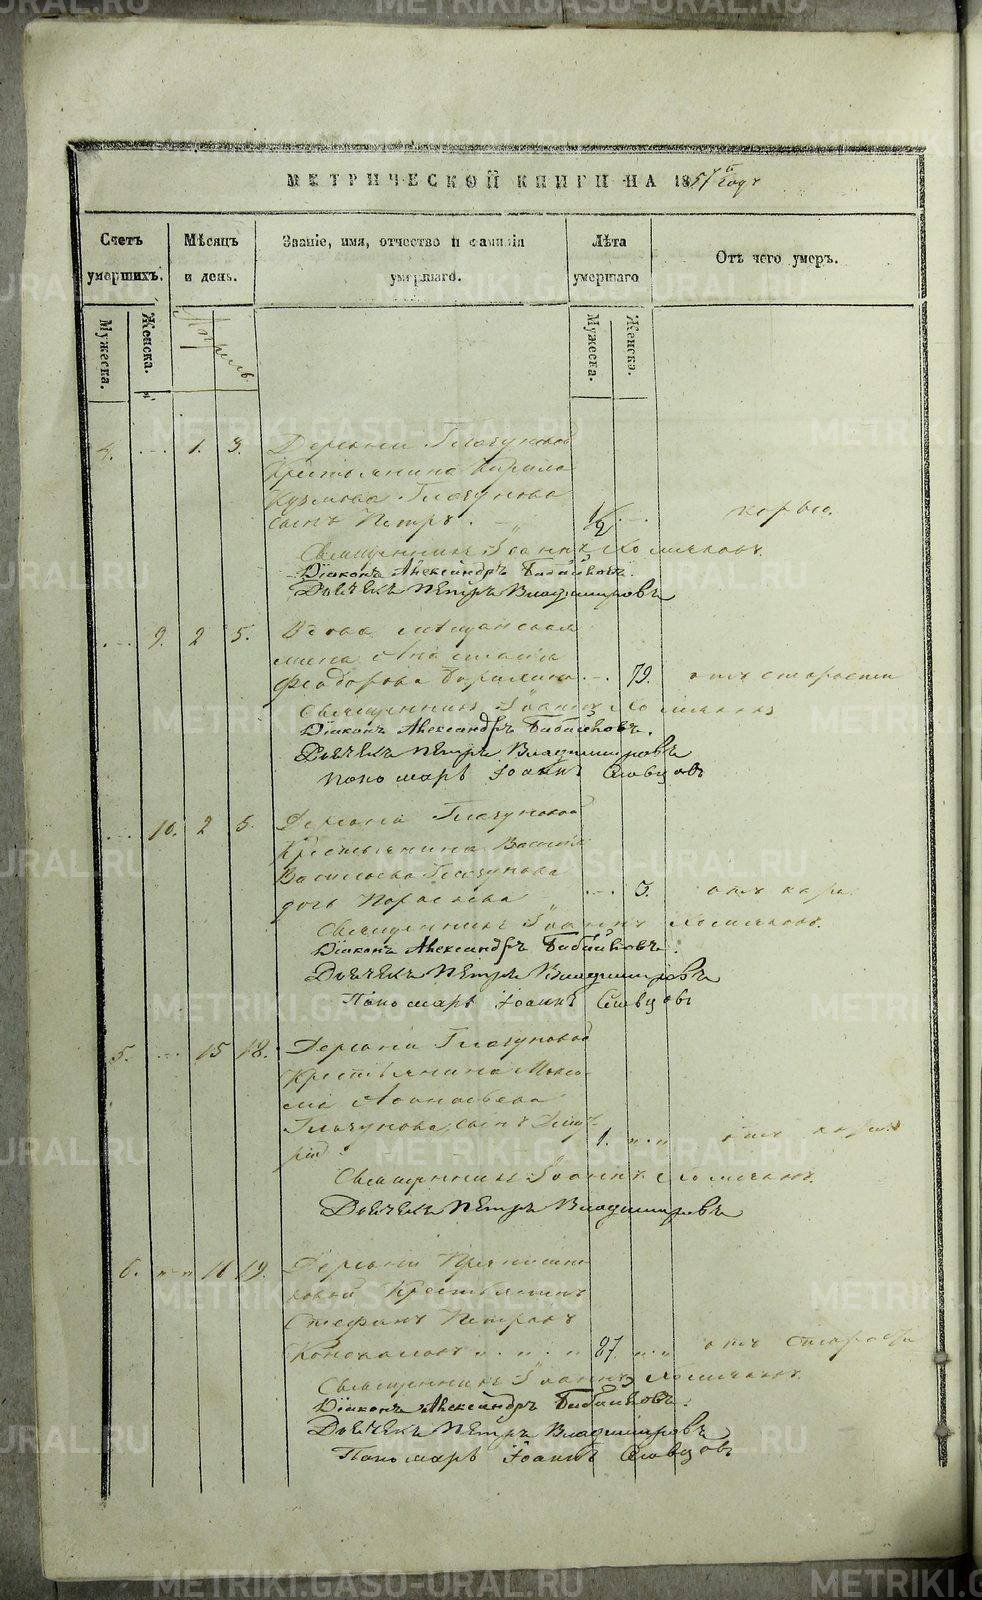 METRIKI.GASO-URAL.RU
МЕТРИЧЕСКОЙ КНИГИ НА 1857 года
Счетъ умершихъ.
Мѣсяцъ и день.
Званіе, имя, отчество и фамилія умершаго.
Лѣта умершаго
Отъ чего умеръ.
Мужеска.
Женска.
Апрель
Мужеска.
Женска.
4. 1. 3. Деревни Глазуновой
Крестьянина Кирила
Кузмова Глазунова
сынъ Петръ. 1/2 корью.
Священникъ Іоаннъ Хомяковъ.
Діаконъ Александръ Бабайковъ.
Дьячекъ Петръ Владимировъ
9. 2 5. Вдова мѣщанская
жена Анастасія
Феодорова 79. отъ старости
Священникъ Іоаннъ Хомяковъ
Діаконъ Александръ Бабайковъ.
Дьячекъ Петръ Владимировъ
Пономарь Іоаннъ Словцовъ
10. 2 5. Деревни Глазуновой
Крестьянина Василія
Васильева Глазунова
дочь Параскева 3. отъ кори.
Священникъ Іоаннъ Хомяковъ.
Діаконъ Александръ Бабайковъ.
Дьячекъ Петръ Владимировъ
Пономарь Іоаннъ Словцовъ
5. 15 18. Деревни Глазуновой
Крестьянина Макси-
ма Афанасьева
Глазунова сынъ Дмит-
рій 1. отъ кори.
Священникъ Іоаннъ Хомяковъ.
Дьячекъ Петръ Владимировъ
6. 16 19. Деревни
Крестьянинъ
Стефанъ Петровъ
Коноваловъ 87. отъ старости
Священникъ Іоаннъ Хомяковъ.
Діаконъ Александръ Бабайковъ.
Дьячекъ Петръ Владимировъ
Пономарь Іоаннъ Словцовъ